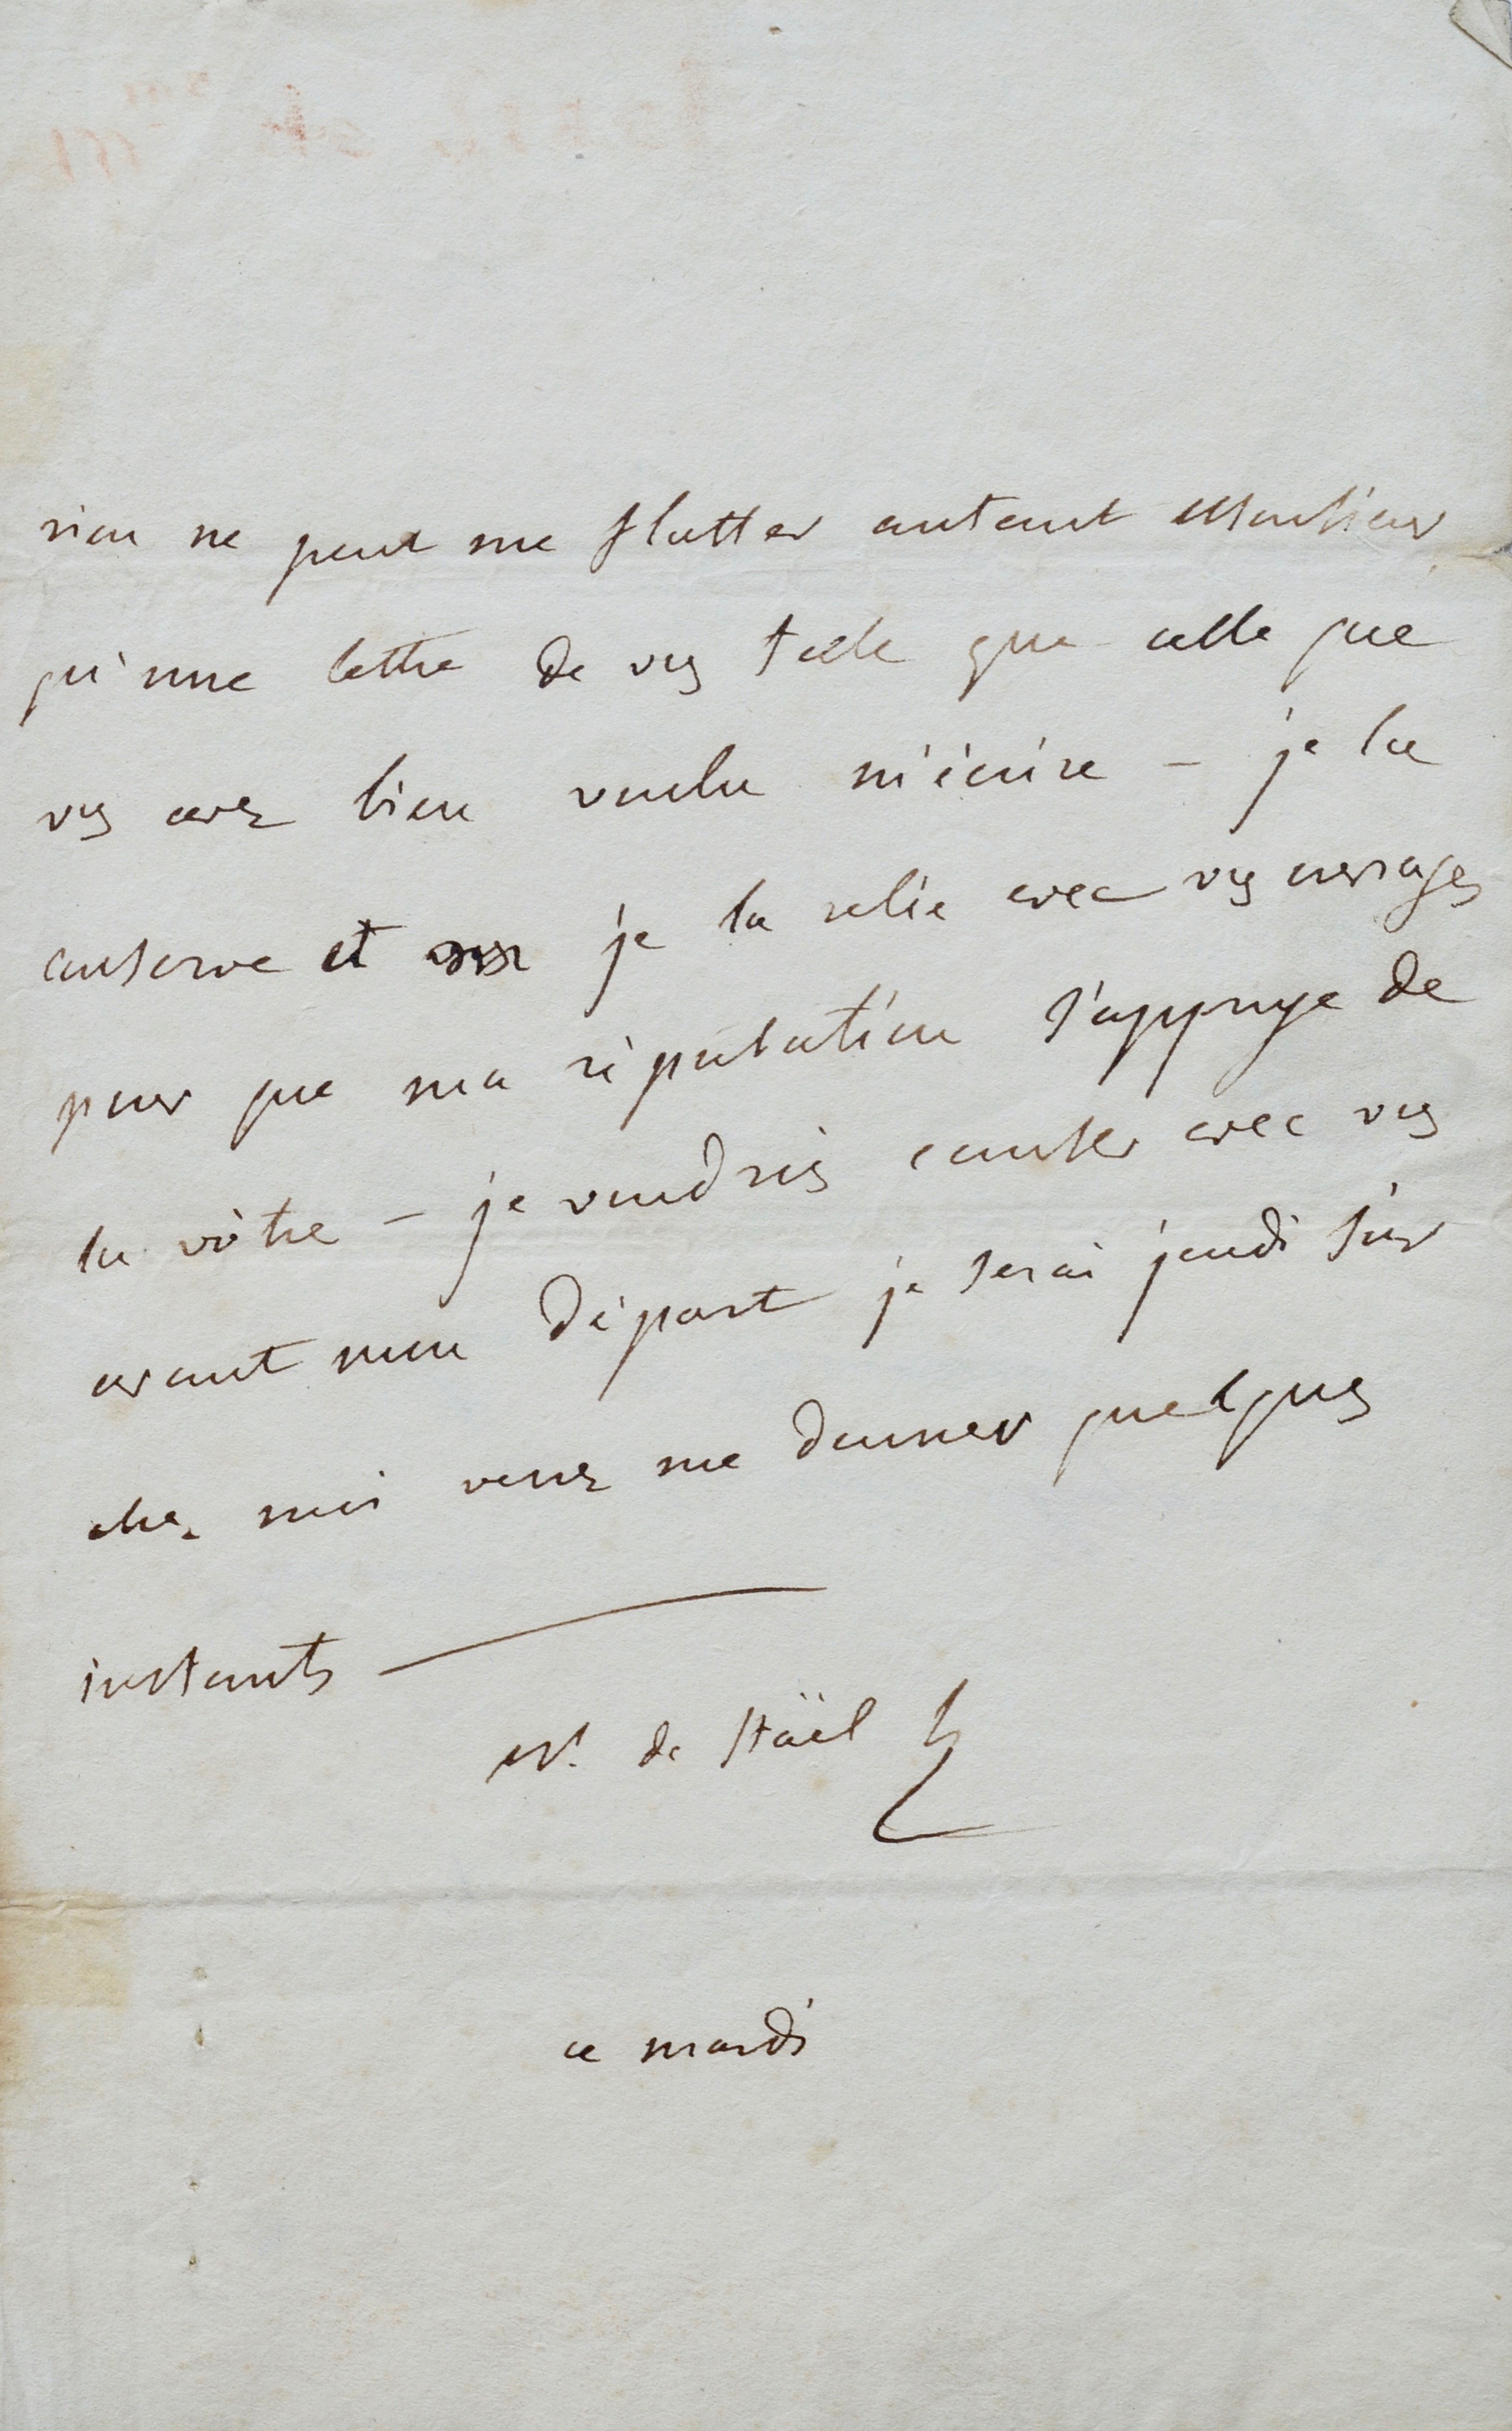 rien ne peut me flatter autant Monsieur
qu'une lettre de vs telle que celle que
vs avez bien voulu m'écrire – je la
conserve et je la relie avec vos ouvrages
pour que ma réputation s'appuye de
la vôtre – je voudrois causer avec vs
avant mon départ je serai jeudi soir
chez moi venez me donner quelques
instants —
N. de Staël h
ce mardi